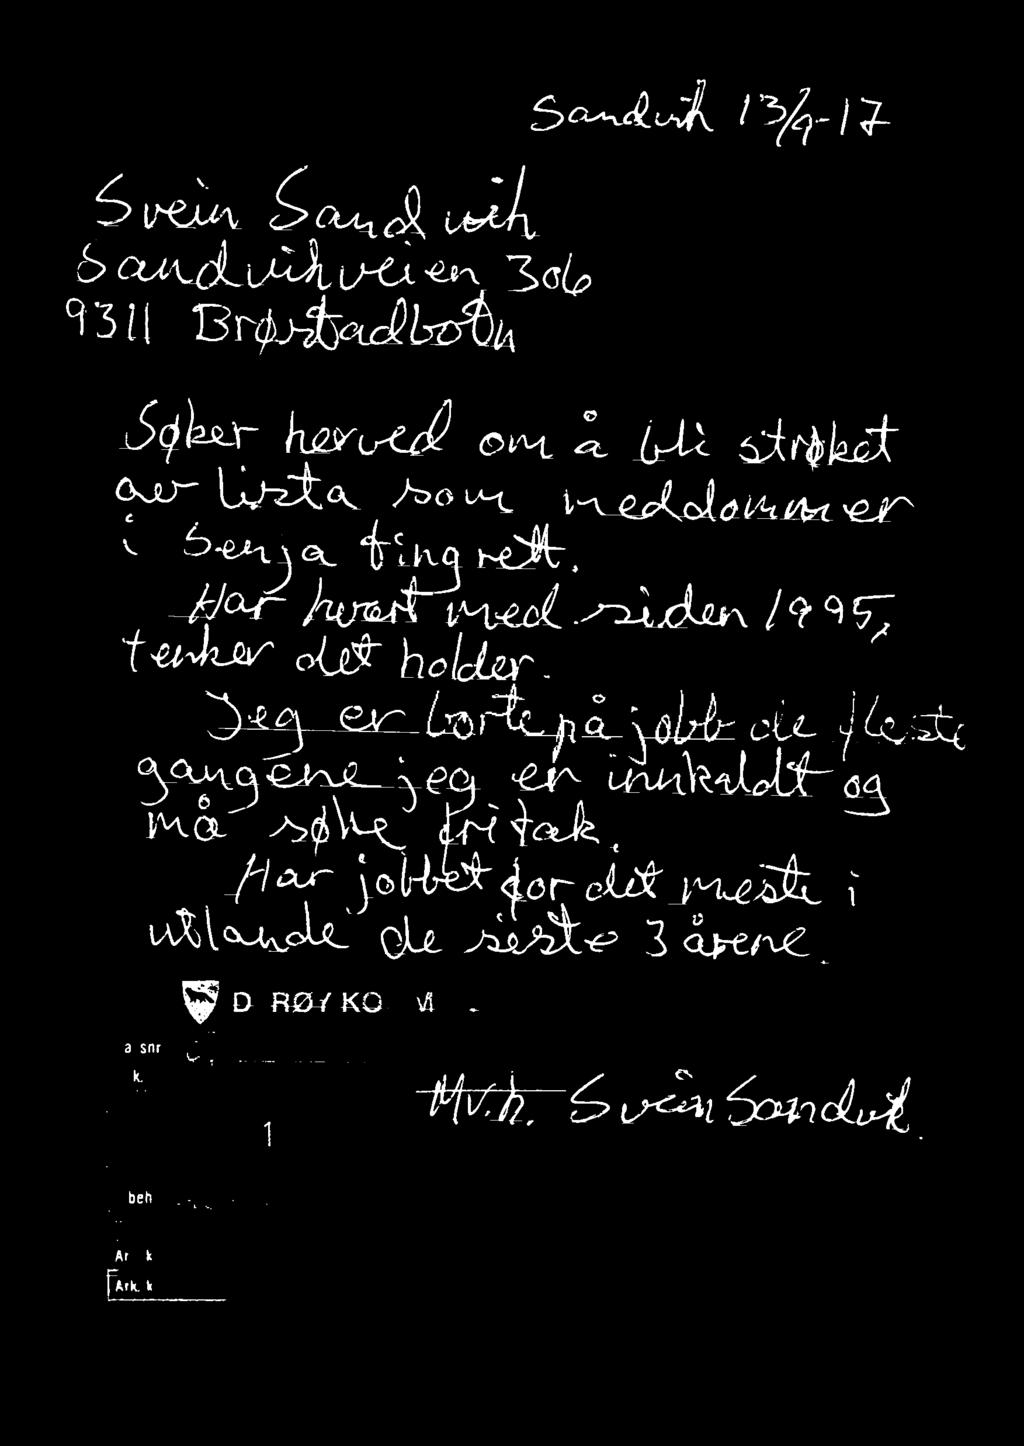 Sandvik 13/9-17
Svein Sandvik
Sandvikveien 306
9311 Brøstadbotn
Søker herved om å bli strøket
av lista som meddommer
i Senja tingrett.
Har hvert med siden 1995,
tenker det holder.
Jeg er borte på jobb de fleste
gangene jeg er innkaldt og
må søke fritak.
Har jobbet for det meste i
utlande de siste 3 årene.
D RØY KO
a snr
k.
Mv.h. Svein Sandvik.
1
beh
Ar k
Ark. k